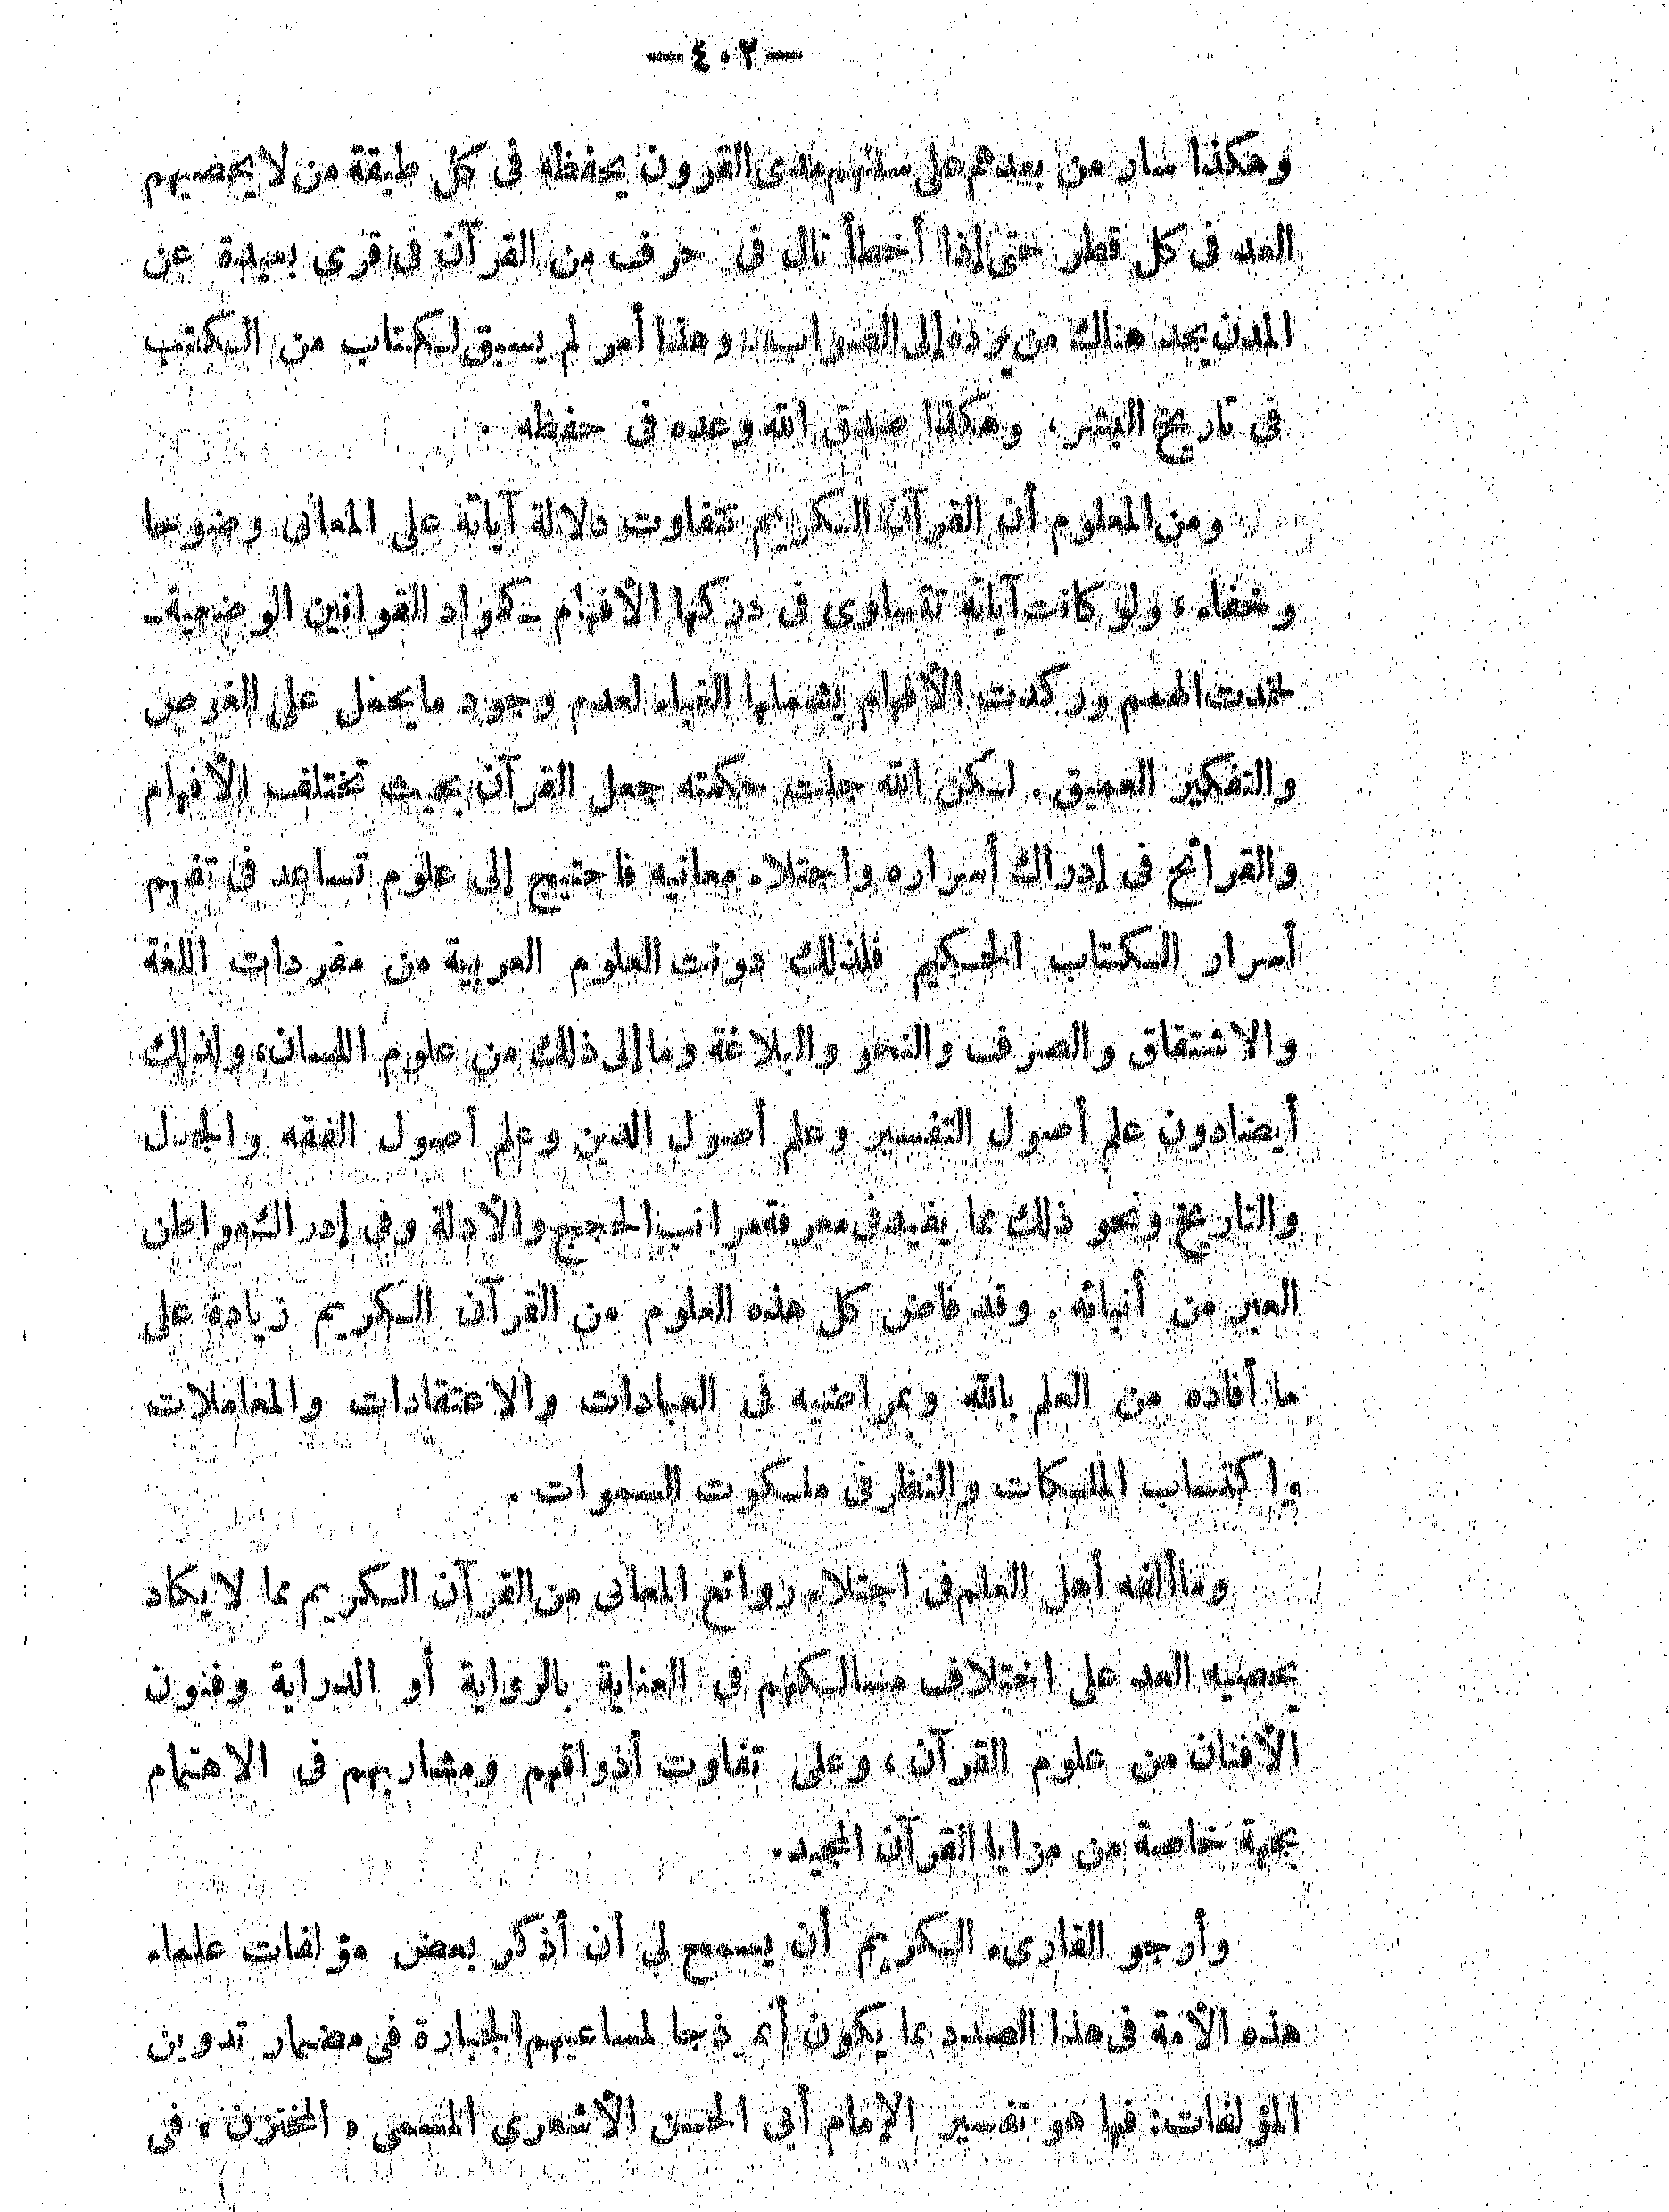 — ٤٠٢ —
وهكذا سار من بعدهم على سننهم مدى القرون يحفظه فى كل طبقة من لا يحصيهم
العد فى كل قطر حتى إذا أخطأ تال فى حرف من القرآن فى قرى بعيدة عن
المدن يجد هناك من يرده إلى الصواب . وهذا أمر لم يسبق لكتاب من الكتب
فى تاريخ البشر ، وهكذا صدق الله وعده فى حفظه .
ومن المعلوم أن القرآن الكريم تتفاوت دلالة آياته على المعانى وضوحا
وخفاء ، ولو كانت آياته تتساوى فى دركها الأفهام ـ كمواد القوانين الوضعية ـ
لخمدت الهمم وركدت الأفهام يشملها الغباء لعدم وجود ما يحمل على الغوص
والتفكير العميق . لكن الله جلت حكمته جعل القرآن بحيث تختلف الأفهام
والقرائح فى إدراك أسراره واجتلاء معانيه فاحتيج إلى علوم تساعد فى تفهم
أسرار الكتاب الحكيم فلذلك دونت العلوم العربية من مفردات اللغة
والاشتقاق والصرف والنحو والبلاغة وما إلى ذلك من علوم اللسان، ولذلك
أيضا دون علم أصول التفسير وعلم أصول الدين وعلم أصول الفقه والجدل
والتاريخ ونحو ذلك مما يفيد فى معرفة مراتب الحجج والأدلة وفى إدراك مواطن
العبر من أنبائه . وقد فاض كل هذه العلوم من القرآن الكريم زيادة على
ما أفاده من العلم بالله وبمراضيه فى العبادات والاعتقادات والمعاملات
واكتساب الملكات والنظر فى ملكوت السموات .
وما ألفه أهل العلم فى اجتلاء روائع المعانى من القرآن الكريم مما لا يكاد
يحصيه العد على اختلاف مسالكهم فى العناية بالرواية أو الدراية وفنون
الأفنان من علوم القرآن ، وعلى تفاوت أذواقهم ومشاربهم فى الاهتمام
بجهة خاصة من مزايا القرآن المجيد .
وأرجو القارىء الكريم أن يسمح لى أن أذكر بعض مؤلفات علماء
هذه الأمة فى هذا الصدد مما يكون أنموذجا لمساعيهم الجبارة فى مضمار تدوين
المؤلفات : فها هو تفسير الإمام أبى الحسن الأشعرى المسمى « المختزن » فى